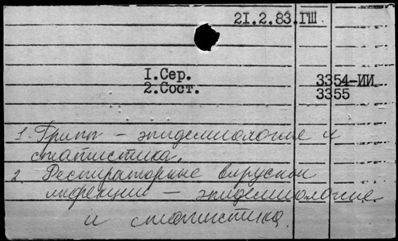 21.2.83.ГШ
1.Сер. 3354-ИИ
2.Сост. 3355
1. Грипп - эпидемиология и
статистика.
2. Респираторные вирусные
инфекции - эпидемиология
и статистика.